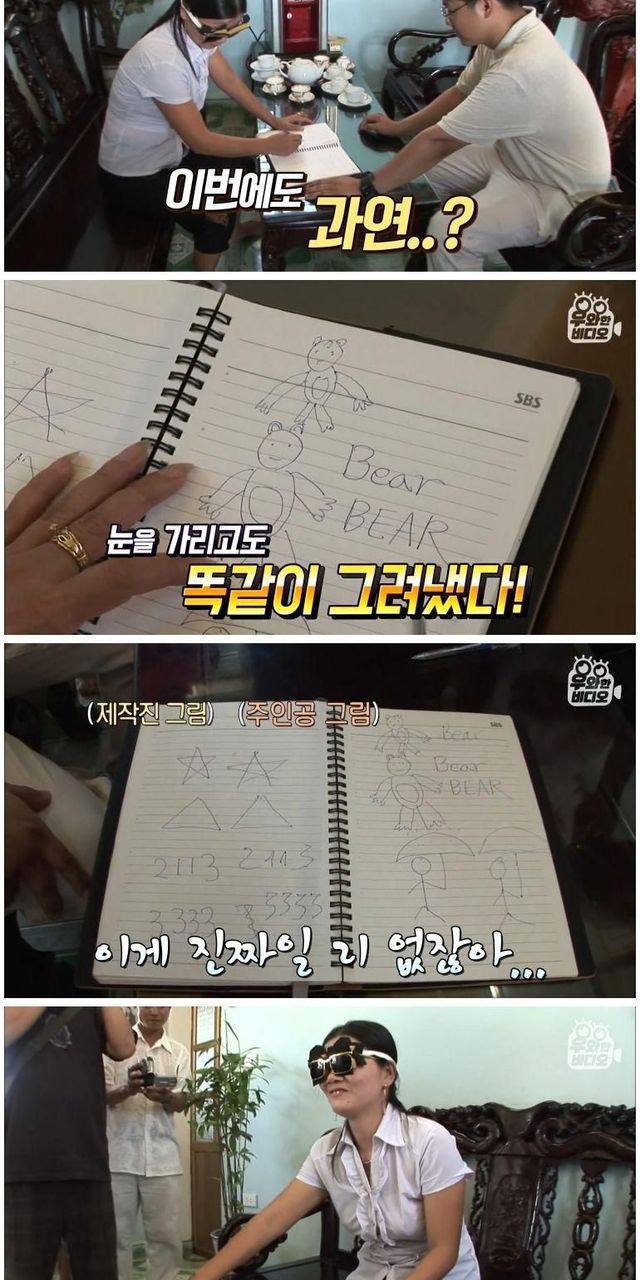 이번에도
과연..?
우와한
비디오
SBS
Bear
BEAR
눈을 가리고도
똑같이 그려냈다!
우와한
비디오
(제작진 그림) (주인공 그림)
SBS
Bear
Bear
BEAR
2113 2113
3333 3333
이게 진짜일 리 없잖아...
우와한
비디오